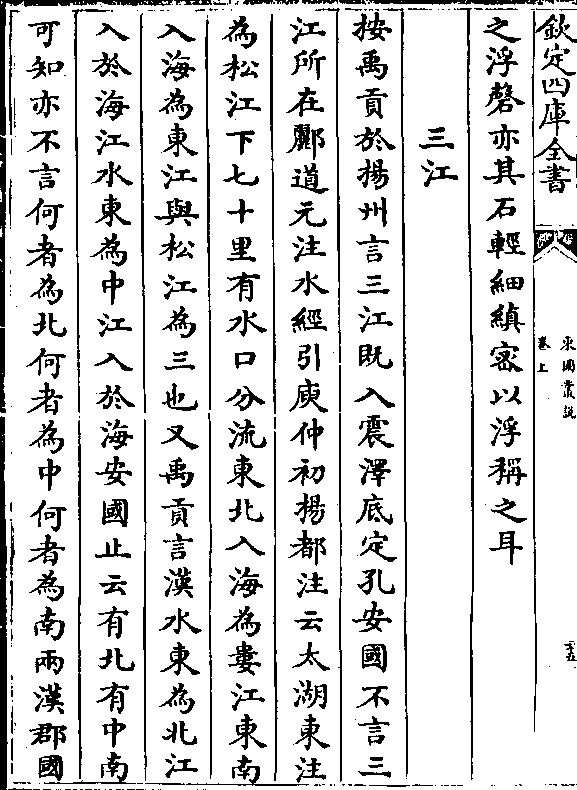 欽定四庫全書
東園叢說
卷上
二十五
之浮磬亦其石輕細縝密以浮稱之耳
三江
按禹貢於揚州言三江既入震澤底定孔安國不言三
江所在酈道元注水經引庾仲初揚都注云太湖東注
為松江下七十里有水口分流東北入海為婁江東南
入海為東江與松江為三也又禹貢言漢水東為北江
入於海江水東為中江入於海安國止云有北有中南
可知亦不言何者為北何者為中何者為南兩漢郡國